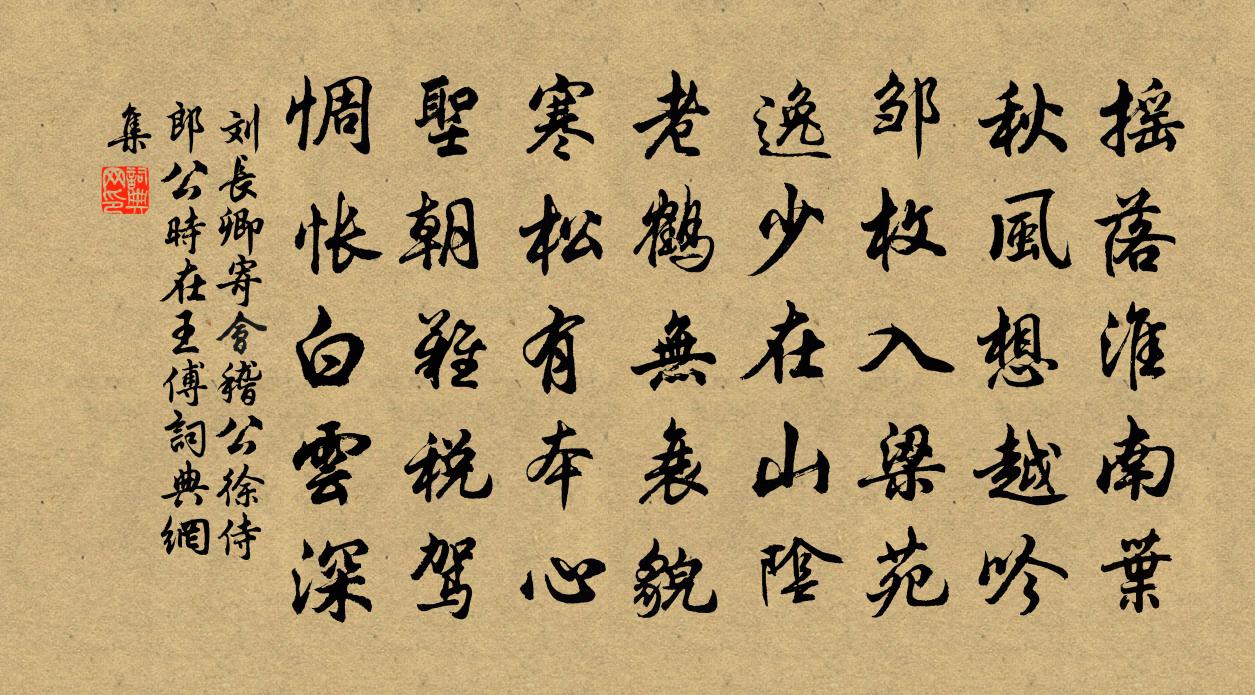 摇落淮南葉
秋風想越吟
邹枚入梁苑
逸少在山陰
老鶴無衰貌
寒松有本心
聖朝難税駕
惆怅白雲深
刘長卿寄會稽公徐侍
郎公時在王傅詞典網
集
詞典
网印